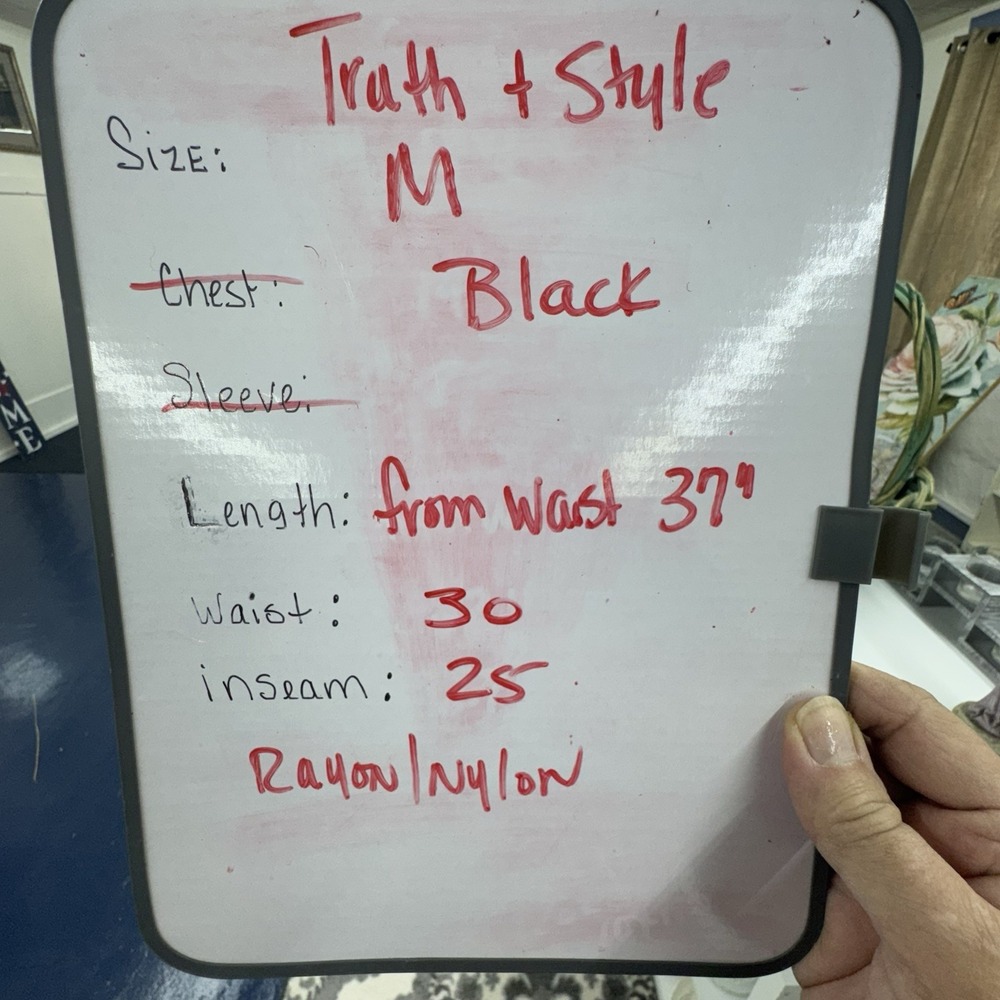 Truth + Style
Size: M
Chest: Black
Sleeve:
Length: from Waist 37"
Waist: 30
inseam: 25
Rayon/Nylon
ME